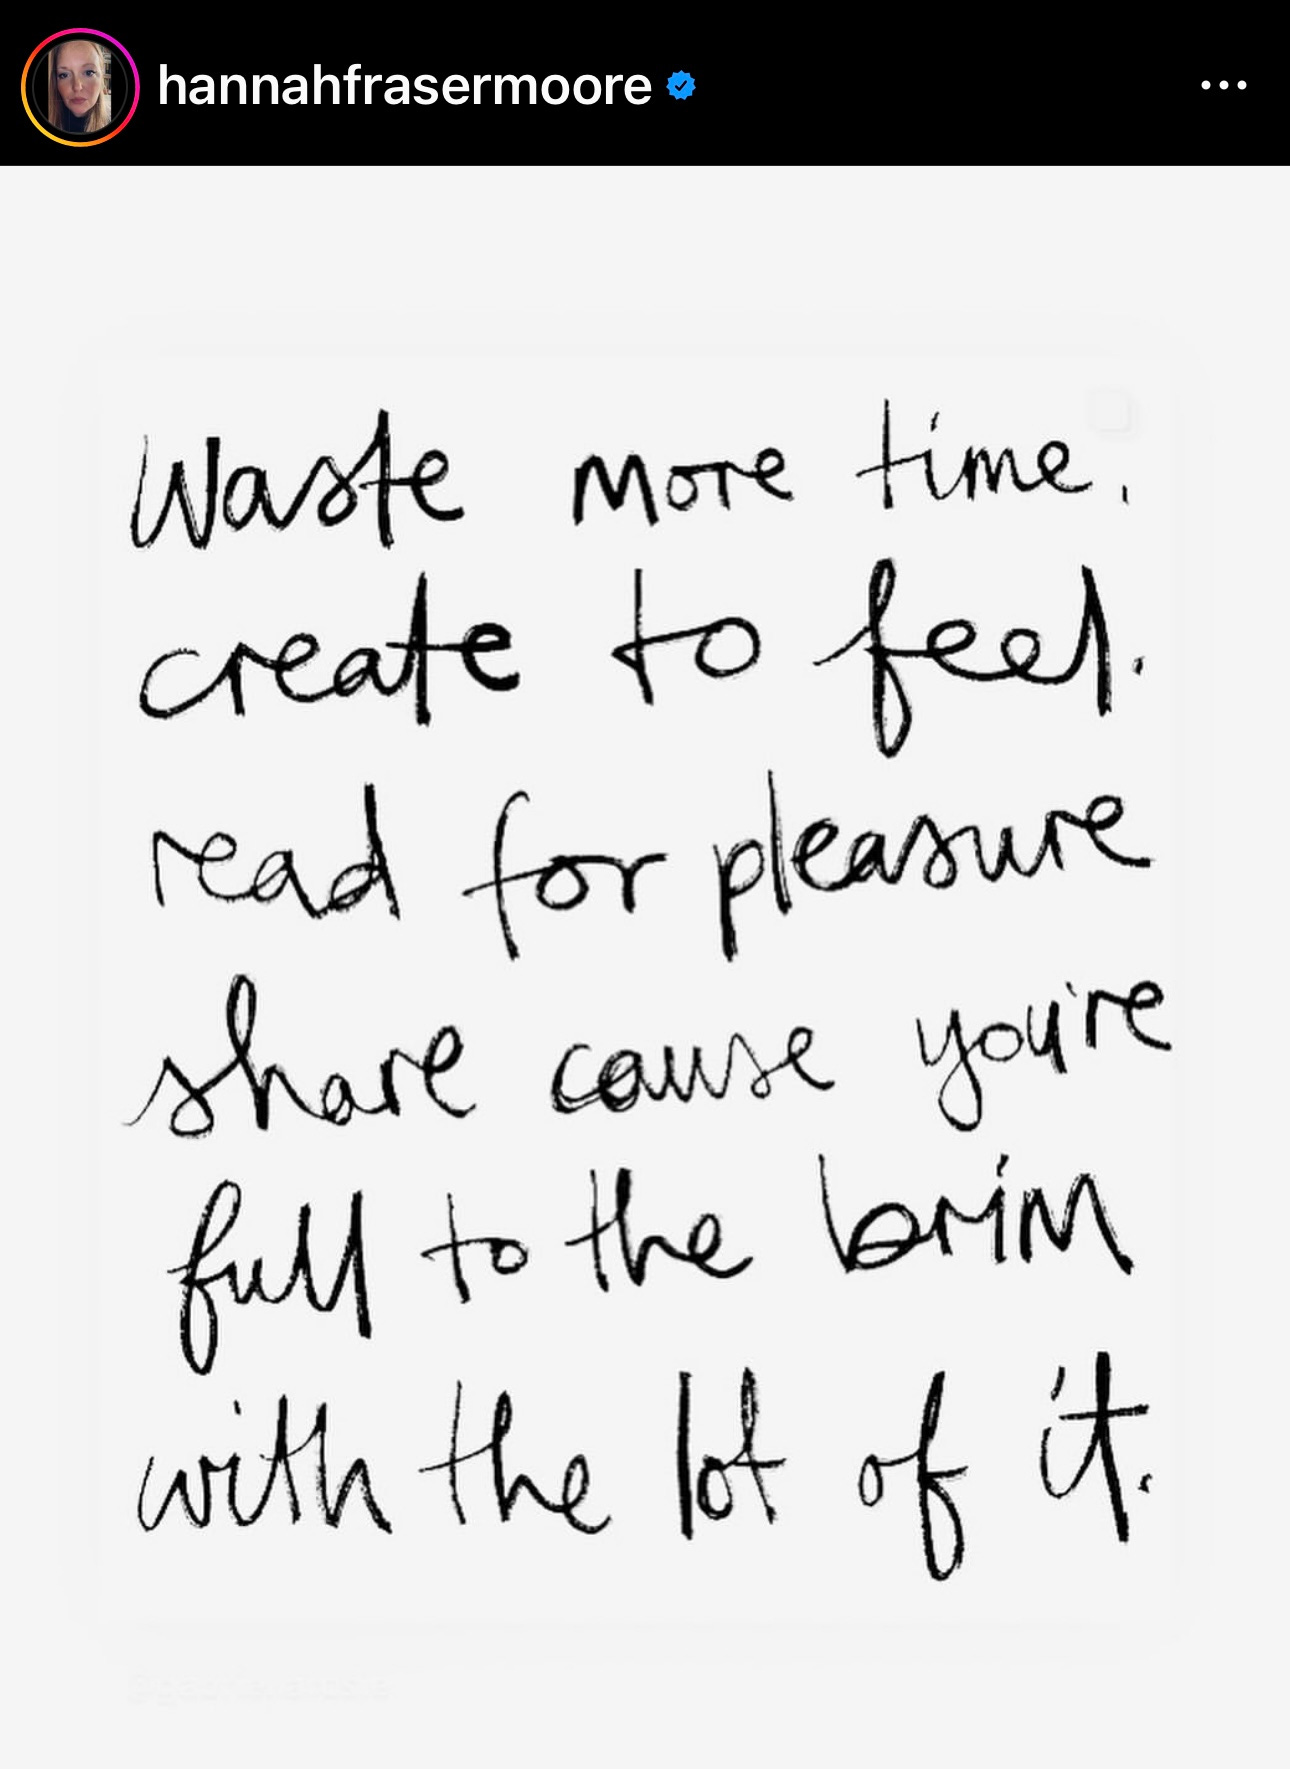 hannahfrasermoore
Waste more time.
create to feel.
read for pleasure
share cause you're
full to the brim
with the lot of it.